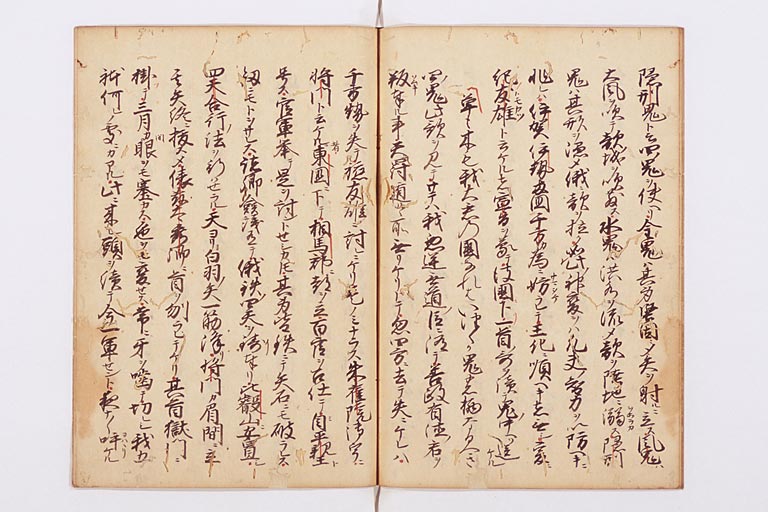 隠形鬼ト云四鬼ヲ使ヘリ金鬼ハ其身堅固ニメ矢ヲ射ルニ立ス風鬼ハ
大風ヲ吹テ敵城ヲ吹破ル水鬼ハ洪水ヲ流メ敵ヲ陸地ニ溺ス隠形
鬼ハ其形ヲ隠メ俄敵ヲ拉如此神変ハ凡夫智力ヲ以防ヘキニ
非レハ伊賀伊勢両国千方カ為ニ妨ラレテ王化ニ順フ者ナシ爰ニ
紀友雄ト云ケル者宣旨ヲ蒙テ彼国ニ下一首哥ヲ読テ鬼中ヘ送ケル
草モ木モ我大君ノ国ナレハイツクカ鬼ノ栖ナルヘキ
四鬼此歌ヲ見テサテハ我等悪逆無道臣ニ随テ善政有徳ノ君ヲ
叛奉ル事天罰遁ルニ所無リケリトテ忽四方ニ去テ失ニケレハ
千方勢ヲ失テ軈友雄ニ討レニケリ是ノミナラス朱雀院御宇ニ
将門ト云ケル者東国ニ下テ相馬郡ニ都ヲ立百官ヲ召仕テ自平親王ト
号ス官軍挙テ是ヲ討トセシカ共其身皆鉄ニテ矢石ニモ破ラレス
剱ニモトヲサス諸卿僉議有テ俄鉄四天ヲ鋳奉リ比叡山ニ安置メ
四天合行法ヲ行セラル天ヨリ白羽矢一筋降テ将門カ眉間ニ立
其矢終ニ抜メ俵藤太秀郷ニ首ヲ刎ラレテケリ其首獄門ニ
掛テ三月カ間眼ヲモ塞カス色ヲモ変セス常ニ牙ヲ噛テ切レシ我五
躰何レノ処ニカ有ル此ニ来レ頭ヲ續テ今一軍セント夜々呼ケル